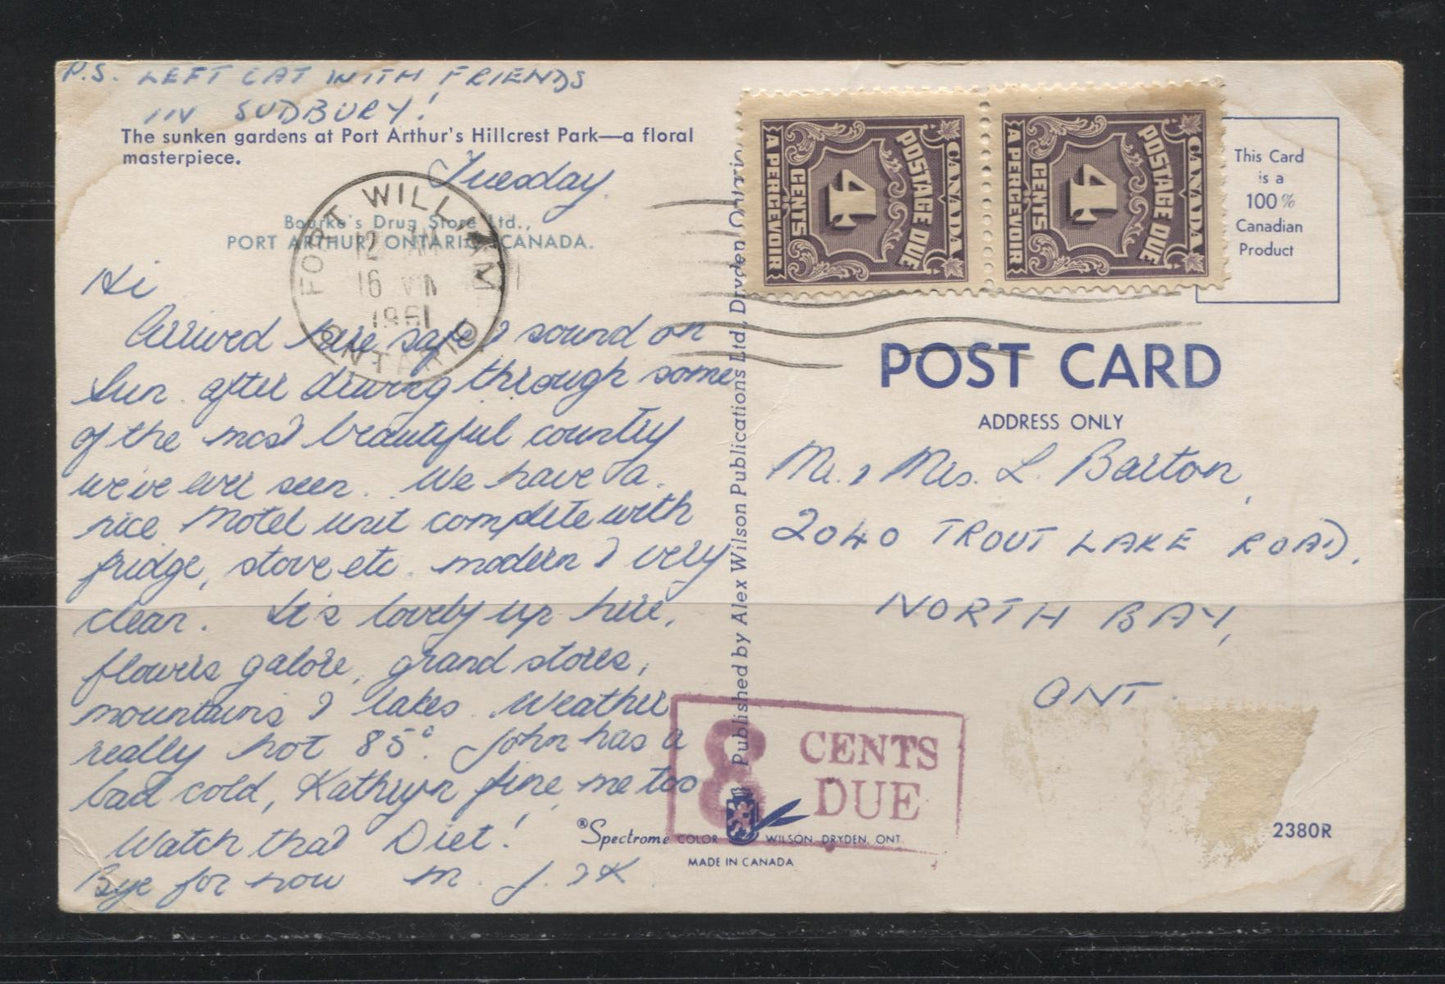 P.S. LEFT CAT WITH FRIENDS
IN SUDBURY!
The sunken gardens at Port Arthur's Hillcrest Park—a floral
masterpiece.
Tuesday.
Bourke's Drug Store Ltd.,
PORT ARTHUR, ONTARIO, CANADA.
FORT WILLIAM
12 AM
16 VIII
1961
ONTARIO
Hi
Arrived here safe & sound on
Sun. after driving through some
of the most beautiful country
we've ever seen. We have a
nice Motel unit complete with
fridge, stove etc. modern & very
clean. It's lovely up here,
flowers galore, grand stores,
mountains & lakes. Weather
really hot 85°. John has a
bad cold, Kathryn fine, me too
Watch that Diet!
Bye for now M. J. & K
Published by Alex Wilson Publications Ltd., Dryden, Ontario
CANADA
POSTAGE DUE
4
CENTS
A PERCEVOIR
CANADA
POSTAGE DUE
4
CENTS
A PERCEVOIR
This Card
is a
100%
Canadian
Product
POST CARD
ADDRESS ONLY
Mr. & Mrs. L. Barton,
2040 TROUT LAKE ROAD,
NORTH BAY,
ONT.
8 CENTS
DUE
®Spectrome COLOR WILSON, DRYDEN, ONT.
MADE IN CANADA
2380R